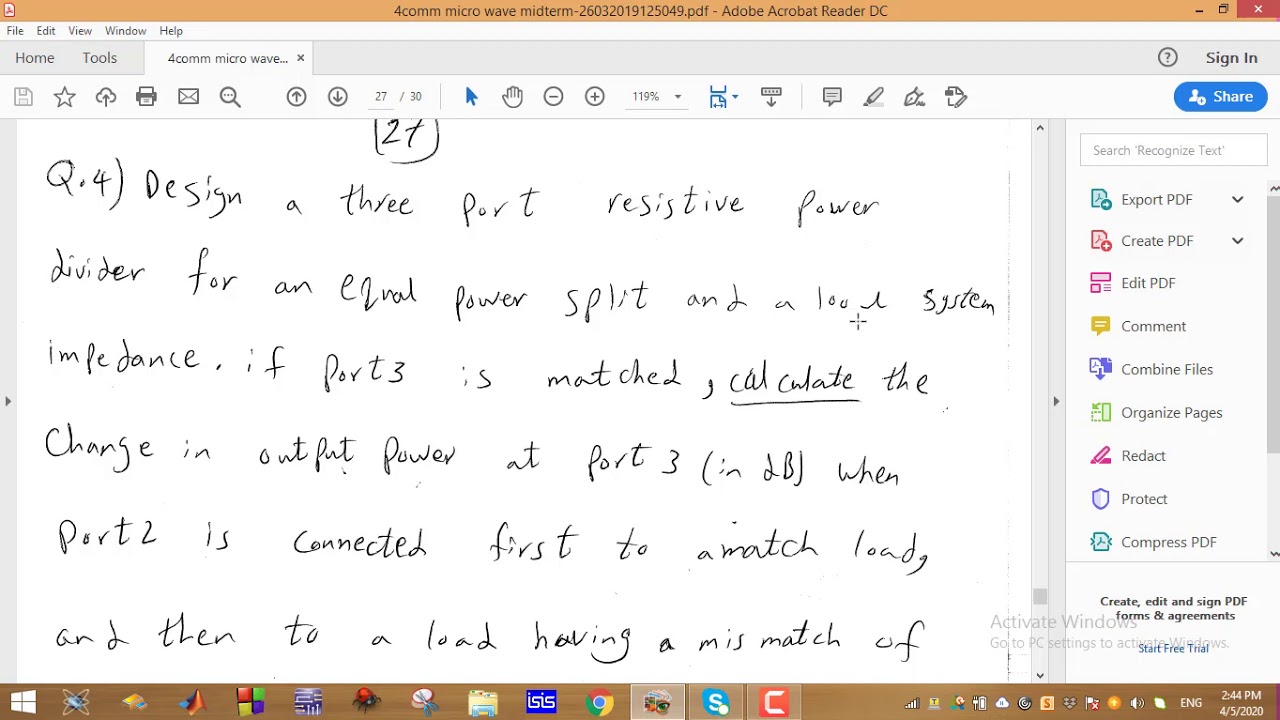 4comm micro wave midterm-26032019125049.pdf - Adobe Acrobat Reader DC
File Edit View Window Help
Home Tools 4comm micro wave... × Sign In
27 / 30 119% Share
27
Q.4) Design a three port resistive power
divider for an equal power split and a system
impedance. if port3 is matched, calculate the
Change in output power at port 3 (in dB) when
Port2 is connected first to a match load,
and then to a load having a mismatch of
Search 'Recognize Text'
Export PDF
Create PDF
Edit PDF
Comment
Combine Files
Organize Pages
Redact
Protect
Compress PDF
Create, edit and sign PDF
forms & agreements
Start Free Trial
Activate Windows
Go to PC settings to activate Windows.
isis
ENG
2:44 PM
4/5/2020